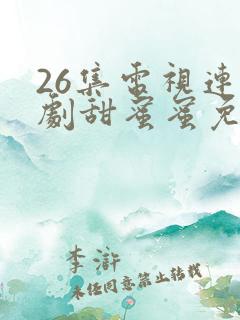 26集電視連
劇甜蜜蜜免
李滸
未经同意禁止转载